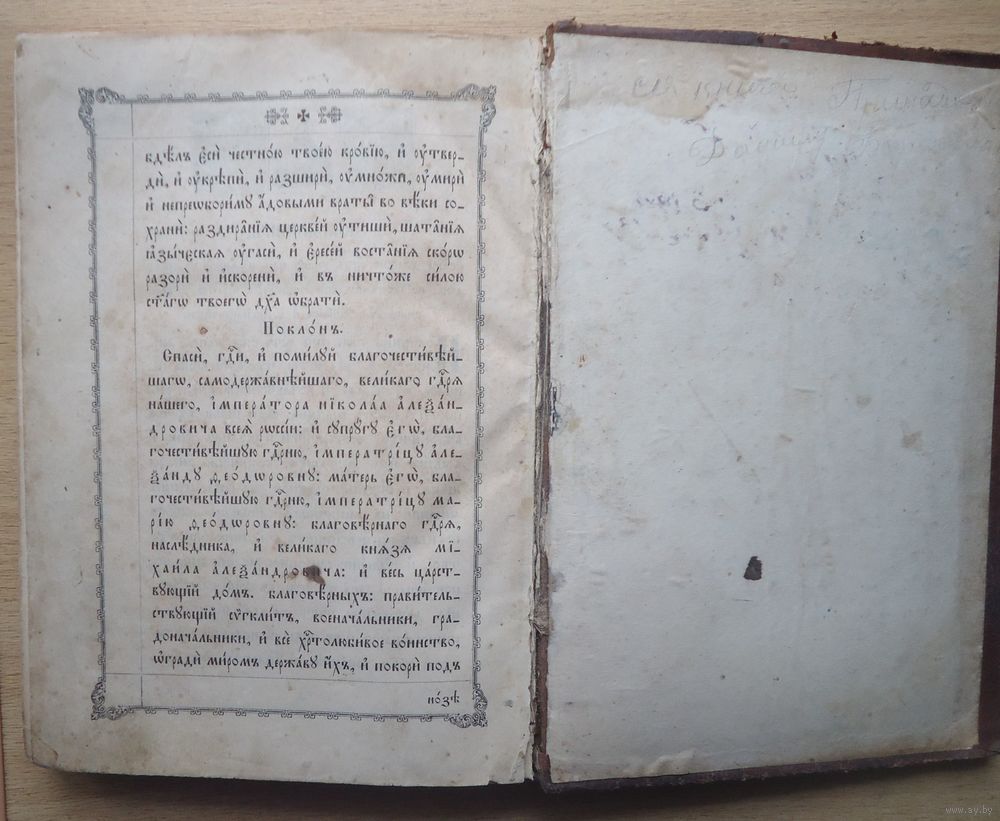 вдѣлъ є҆сѝ честно́ю твое́ю кро́вїю, и҆ ᲂу҆твер-
дѝ, и҆ ᲂу҆крѣпѝ, и҆ разширѝ, ᲂу҆мно́жи, ᲂу҆мирѝ
и҆ непреѡбори́му а҆́довыми враты̀ во вѣ́ки со-
хранѝ: раздира̑нїѧ церкве́й ᲂу҆тишѝ, шата̑нїѧ
ꙗ҆зы́ческаѧ ᲂу҆гасѝ, и҆ є҆ресе́й воста̑нїѧ ско́рѡ
разорѝ и҆ и҆скоренѝ, и҆ въ ничто́же си́лою
ст҃а́гѡ твоегѡ̀ дх҃а ѡ҆братѝ.
Покло́нъ.
Спасѝ, гдⷭ҇и, и҆ поми́лꙋй благочести́вѣй-
шагѡ, самодержа́внѣйшаго, вели́каго гдⷭ҇рѧ
на́шего, і҆мпера́тора нїкола́а а҆леѯа́н-
дровича всеѧ̀ рѡссі́и: и҆ сꙋпрꙋ́гꙋ є҆гѡ̀, бла-
гочести́вѣйшꙋю гдⷭ҇рню, і҆мператрі́цꙋ а҆ле-
ѯа́ндꙋ ѳео́дѡровнꙋ: ма́терь є҆гѡ̀, бла-
гочести́вѣйшꙋю гдⷭ҇рню, і҆мператрі́цꙋ ма-
рі́ю ѳео́дѡровнꙋ: благовѣ́рнаго гдⷭ҇рѧ,
наслѣ́дника, и҆ вели́каго кнѧ́зѧ мї-
хаи́ла а҆леѯа́ндровича: и҆ ве́сь ца́рст-
вꙋющїй до́мъ. благовѣ́рныхъ: прави́тель-
ствꙋющїй сѷгкли́тъ, военача́льники, гра-
донача́льники, и҆ всѐ хрⷭ҇толюби́вое во́инство,
ѡ҆градѝ ми́ромъ держа́вꙋ и҆́хъ, и҆ покорѝ под̾
но́зѣ
сія книга
www.ay.by